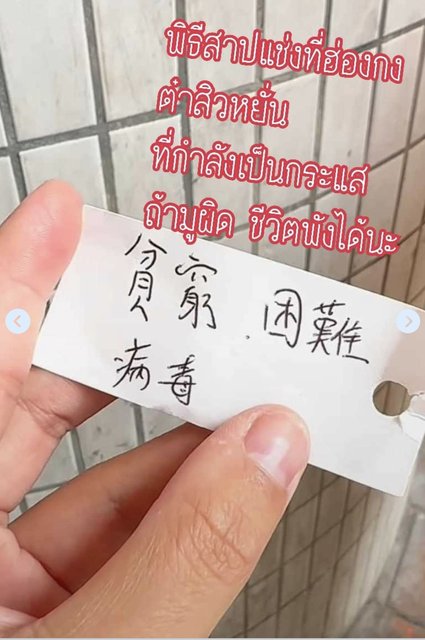 พิธีสาปแช่งที่ฮ่องกง
ต๋าสิวหยั่น
ที่กำลังเป็นกระแส
ถ้ามูผิด ชีวิตพังได้นะ
貧窮.困難
病毒